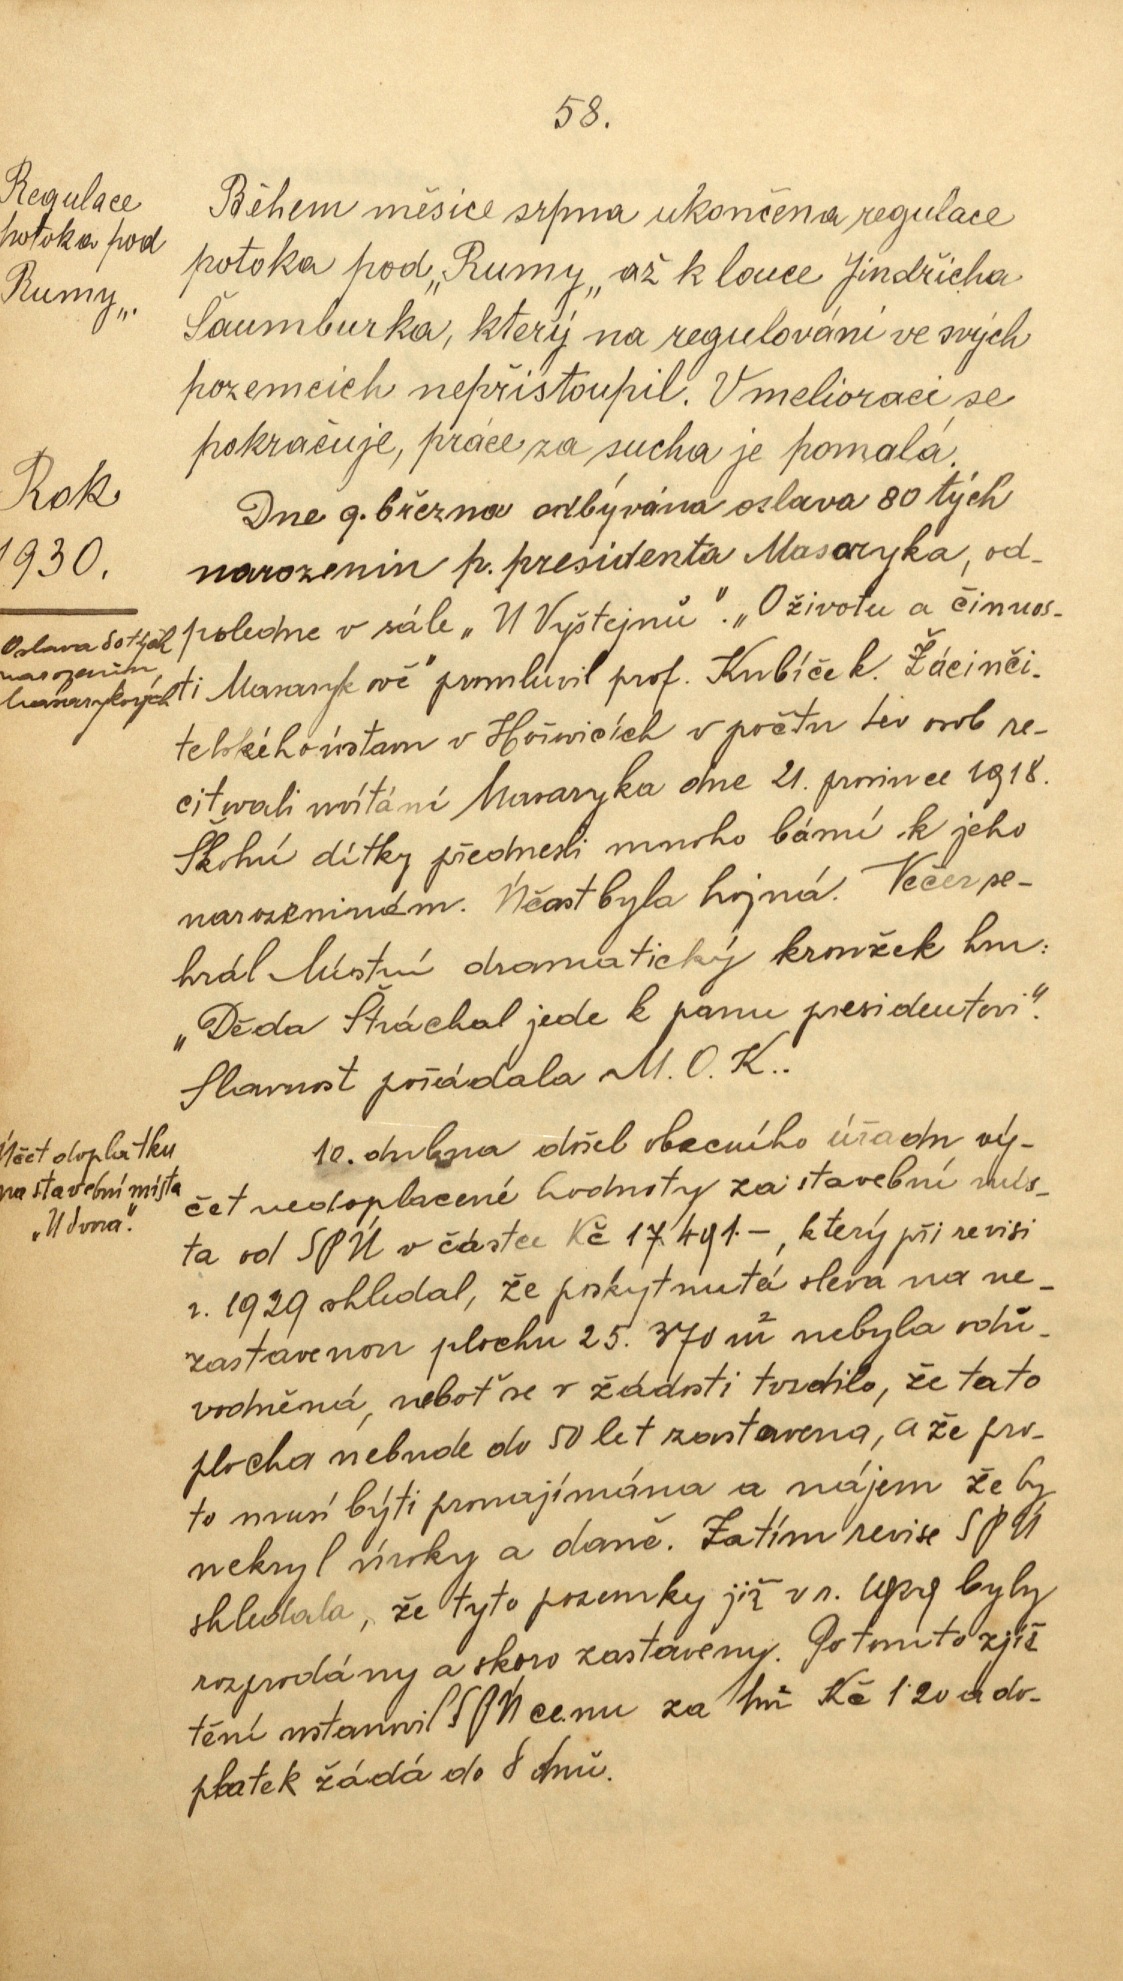 58.
Regulace
potoka pod
Rumy„.
Během měsíce srpna ukončena regulace
potoka pod „Rumy„ až k louce Jindřicha
Šaumburka, který na regulování ve svých
pozemcích nepřistoupil. V melioraci se
pokračuje, práce za sucha je pomalá.
Rok
1930.
Oslava 80 tých
narozenin
Masarykových
Dne 9. března odbývána oslava 80 tých
narozenin p. presidenta Masaryka, od-
poledne v sále „U Vyštejnů". „O životu a činnos-
ti Masarykově" promluvil prof. Kubíček. Žáci uči-
telského ústavu v Hořovicích v počtu
osob re-
citovali uvítání Masaryka dne 21. prosince 1918.
Školní dítky přednesli mnoho básní k jeho
narozeninám. Účast byla hojná. Večer se-
hrál Místní dramatický kroužek hru:
„Děda Štráchal jede k panu presidentovi".
Slavnost pořádala M. O. K..
Účet doplatku
na stavební místa
„U dvora".
10. dubna došel obecního úřadu vý-
čet nedoplacené hodnoty za stavební mís-
ta od SPÚ v částce Kč 17.491.-, který při revisi
r. 1929 shledal, že poskytnutá sleva na ne-
zastavenou plochu 25.370 m² nebyla odů-
vodněná, neboť se v žádosti tvrdilo, že tato
plocha nebude do 50 let zastavena, a že pro-
to musí býti pronajímána a nájem že by
nekryl úroky a daně. Zatím revise SPÚ
shledala, že tyto pozemky již v r. 1929 byly
rozprodány a skoro zastaveny. Po tomto zjiš
tění ustanovil SPÚ cenu za 1m² Kč 1˙20 a do-
platek žádá do 8 dnů.